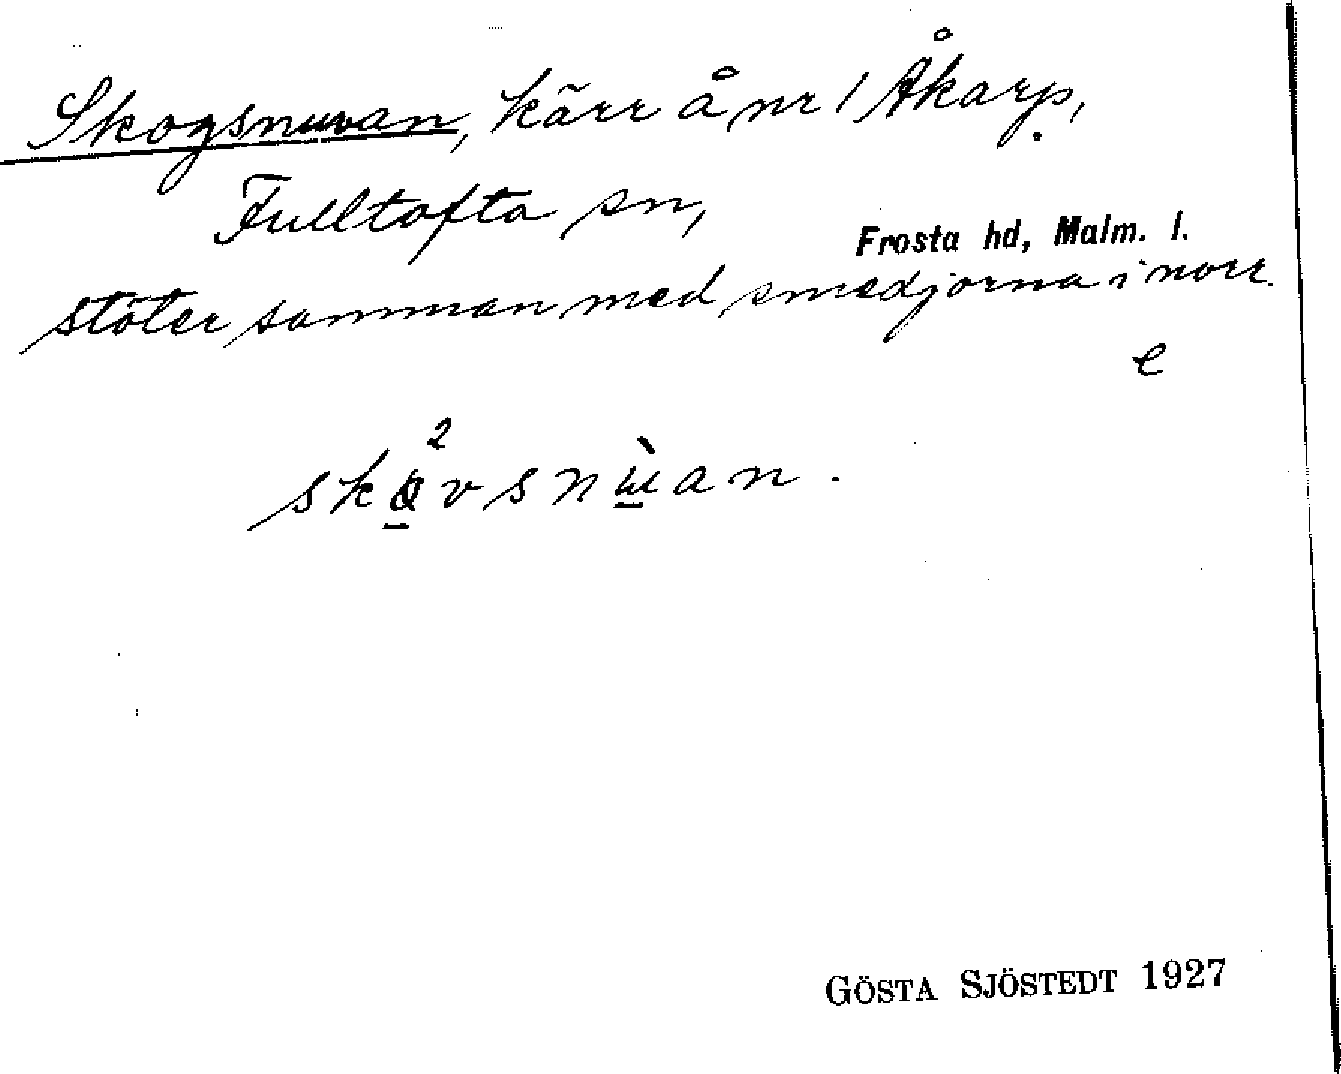 Skogsnuvan, kärr å nr 1 Åkarp,
Fulltofta sn,
Frosta hd, Malm. l.
stöter samman med smedjorna i norr.
e
GÖSTA SJÖSTEDT 1927